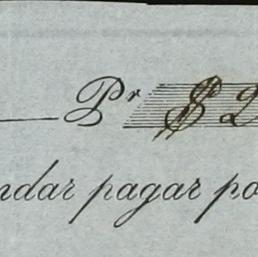 Pr $ 2
ndar pagar po